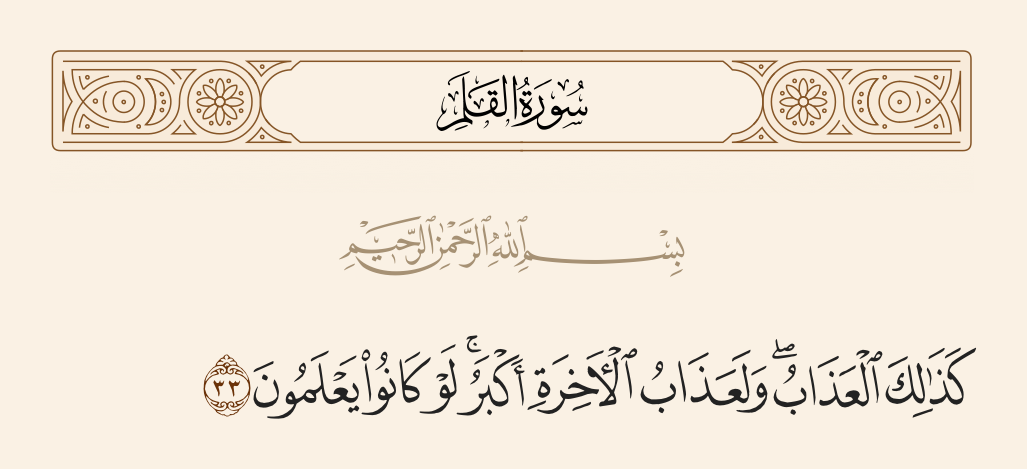 سُورَةُ القَلَمِ
بِسْمِ ٱللَّهِ ٱلرَّحْمَٰنِ ٱلرَّحِيمِ
كَذَٰلِكَ ٱلْعَذَابُ ۖ وَلَعَذَابُ ٱلْأَخِرَةِ أَكْبَرُ ۚ لَوْ كَانُوا۟ يَعْلَمُونَ ٣٣